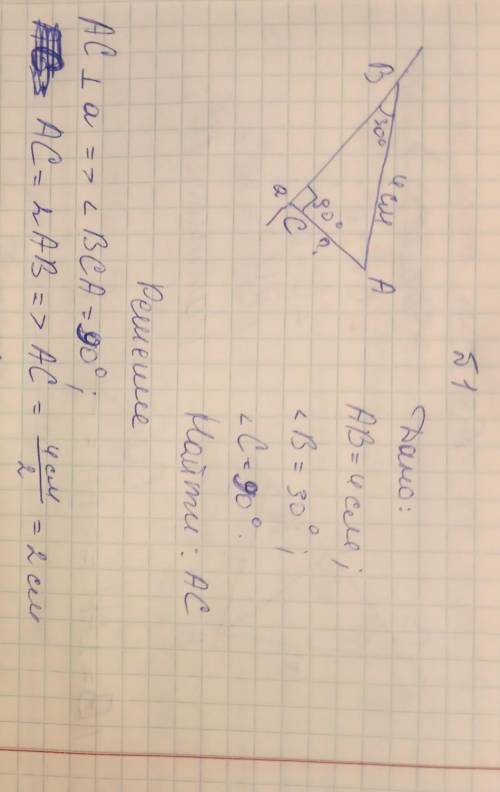 Б1
Дано:
AB = 4 см;
∠B = 30°;
∠C = 90°.
Найти: AC
B
30°
4 см
A
90°
a
C
Решение
AC ⊥ a => ∠BCA = 90°;
AC = 2AB => AC = 4 см / 2 = 2 см